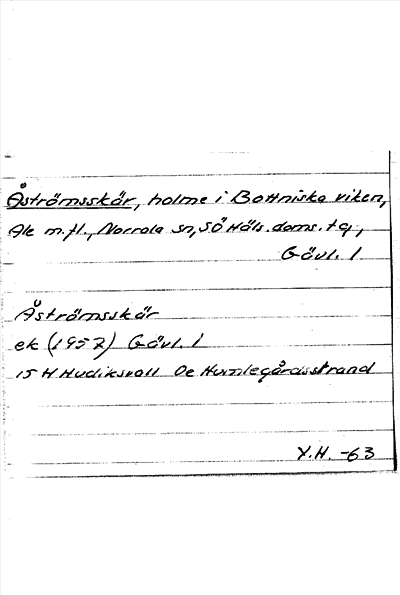 Åströmsskär, holme i Bottniska viken,
Ale m.fl., Norrala sn, SÖ Häls. doms. tg,
Gävl. l
Åströmsskär
ek (1957) Gävl. l
15 H Hudiksvall 0e Humlegårdsstrand
Y.H. -63